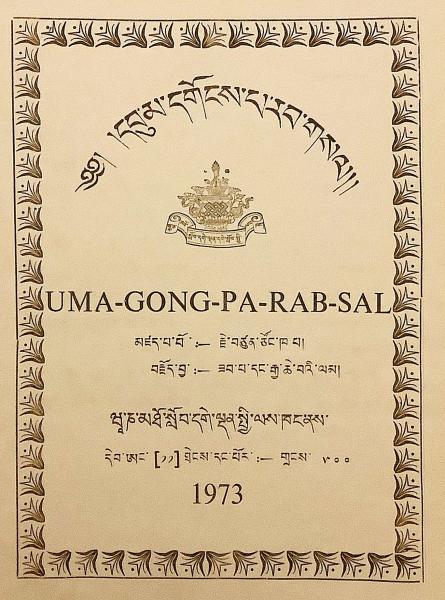 ༄༅། །དབུ་མ་དགོངས་པ་རབ་གསལ།།
UMA-GONG-PA-RAB-SAL
མཛད་པ་པོ་ :— རྗེ་བཙུན་ཙོང་ཁ་པ།
བརྗོད་བྱ་ :— ཟབ་པ་དང་རྒྱ་ཆེ་བའི་ལམ།
ཝཱ་ཎ་མཐོ་སློབ་དགེ་ལྡན་སྤྱི་ལས་ཁང་ནས་
དེབ་ཨང་ [༡༡] ཐེངས་དང་པོར་ :— གྲངས་ ༧༠༠
1973